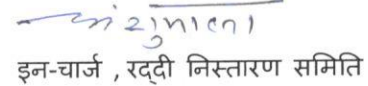 अंशुमाला
इन-चार्ज , रद्दी निस्तारण समिति